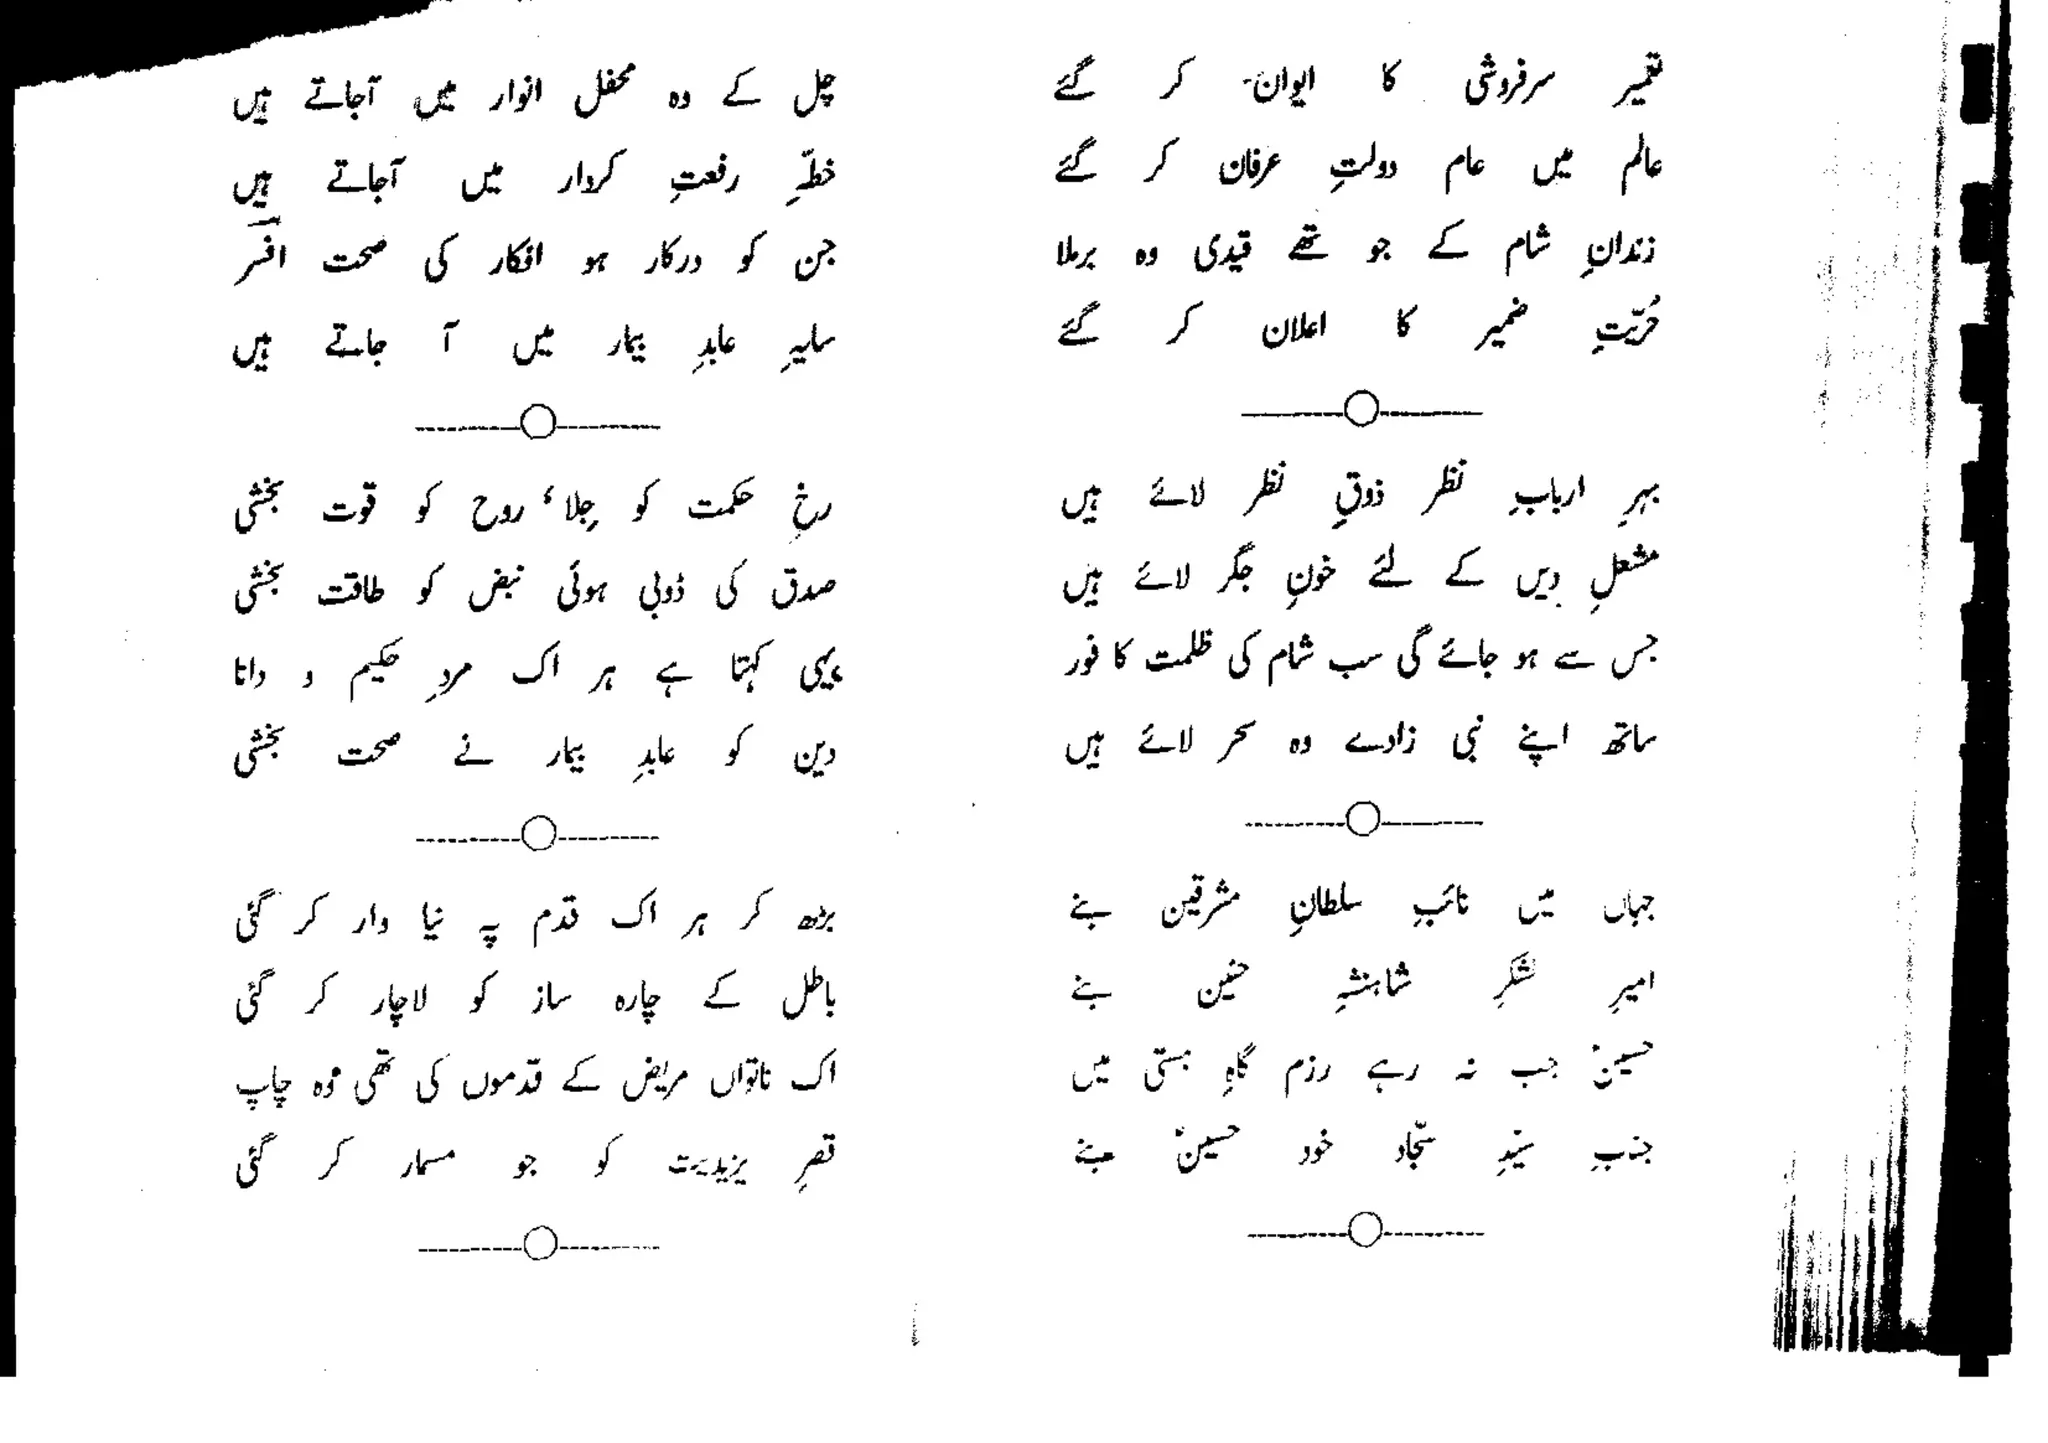 تعمیر سرفروشی کا ایوان کر گئے
عالم میں عام دولتِ عرفان کر گئے
زندانِ شام کے جو تھے قیدی وہ برملا
حُرّیتِ ضمیر کا اعلان کر گئے
بہرِ اربابِ نظر ذوقِ نظر لائے ہیں
مشعلِ دیں کے لئے خونِ جگر لائے ہیں
جس سے ہو جائے گی سب شام کی ظلمت کافور
ساتھ اپنے نبی زادے وہ سحر لائے ہیں
جہاں میں نائبِ سلطانِ مشرقین بنے
امیرِ لشکرِ شاہنشہِ حنین بنے
حسینؑ جب نہ رہے رزم گاہِ ہستی میں
جنابِ سیّدِ سجّاد خود حسینؑ بنے
چل کے وہ محفل انوار میں آجاتے ہیں
خطّہِ رفعتِ کردار میں آجاتے ہیں
جن کو درکار ہو افکار کی صحت افسرؔ
سایہِ عابدِ بیمار میں آ جاتے ہیں
رخِ حکمت کو جِلا، روح کو قوت بخشی
صدق کی ڈوبی ہوئی نبض کو طاقت بخشی
یہی کہتا ہے ہر اک مردِ حکیم و دانا
دین کو عابدِ بیمار نے صحت بخشی
بڑھ کر ہر اک قدم پہ نیا وار کر گئی
باطل کے چارہ ساز کو لاچار کر گئی
اک ناتواں مریض کے قدموں کی تھی وہ چاپ
قصرِ یزیدیت کو جو مسمار کر گئی